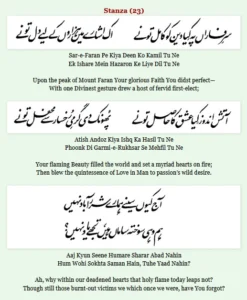 Stanza (23)
سرِ فاراں پہ کیا دین کو کامل تو نے
اک اشارے میں ہزاروں کے لیے دل تو نے
Sar-e-Faran Pe Kiya Deen Ko Kamil Tu Ne
Ek Ishare Mein Hazaron Ke Liye Dil Tu Ne
Upon the peak of Mount Faran Your glorious Faith You didst perfect—
With one Divinest gesture drew a host of fervid first-elect;
آتش اندوز کیا عشق کا حاصل تو نے
پھونک دی گرمیِ رخسار سے محفل تو نے
Atish Andoz Kiya Ishq Ka Hasil Tu Ne
Phoonk Di Garmi-e-Rukhsar Se Mehfil Tu Ne
Your flaming Beauty filled the world and set a myriad hearts on fire;
Then blew the quintessence of Love in Man to passion's wild desire.
آج کیوں سینے ہمارے شرر آباد نہیں
ہم وہی سوختہ ساماں ہیں تجھے یاد نہیں؟
Aaj Kyun Seene Humare Sharar Abad Nahin
Hum Wohi Sokhta Saman Hain, Tuhe Yaad Nahin?
Ah, why within our deadened hearts that holy flame today leaps not?
Though still those burnt-out victims we which once we were, have You forgot?